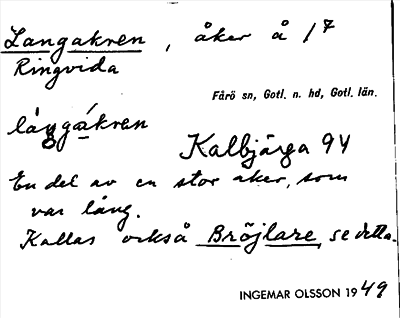 Langakren, åker å 1/7
Ringvida
Fårö sn, Gotl. n. hd, Gotl. län.
långákran
Kalbjärga 94
En del av en stor aker, som
var lång.
Kallas också Bröjlare, se detta.
INGEMAR OLSSON 1949